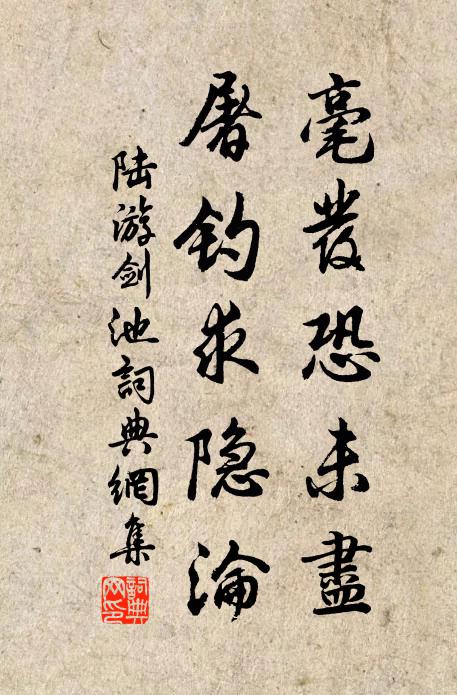 毫發恐未盡
屠钓求隐淪
陆游剑池詞典網集
詞典网印